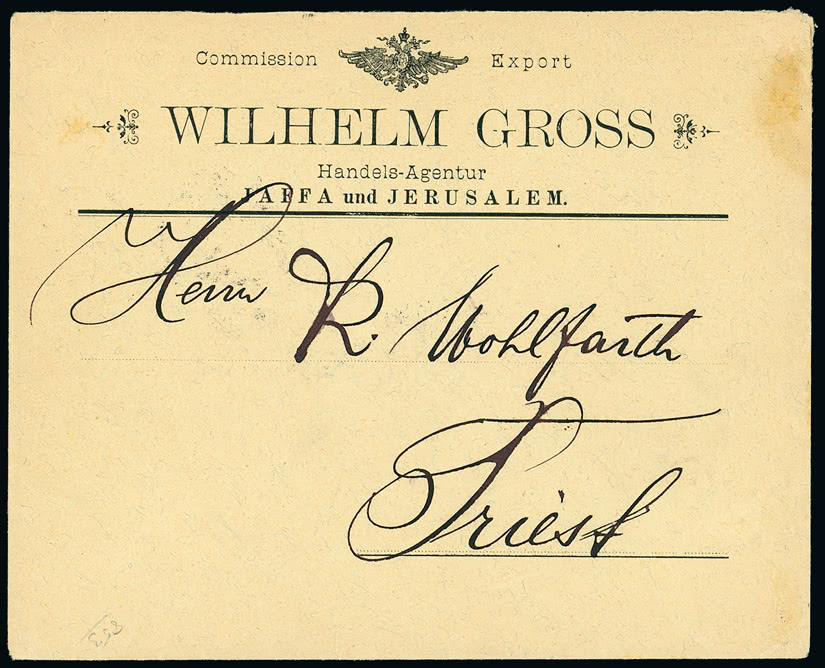 Commission Export
WILHELM GROSS
Handels-Agentur
JAFFA und JERUSALEM.
Herrn R. Wohlfarth
Triest